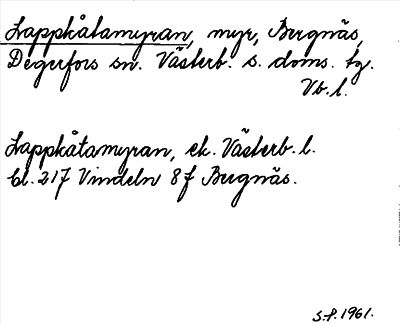 Lappkåtamyran, myr, Bergnäs,
Degerfors sn. Västerb. s. doms. tg.
Vb. l.
Lappkåtamyran, ek. Västerb. l.
bl. 217 Vindeln 8f Bergnäs.
S.P. 1961.